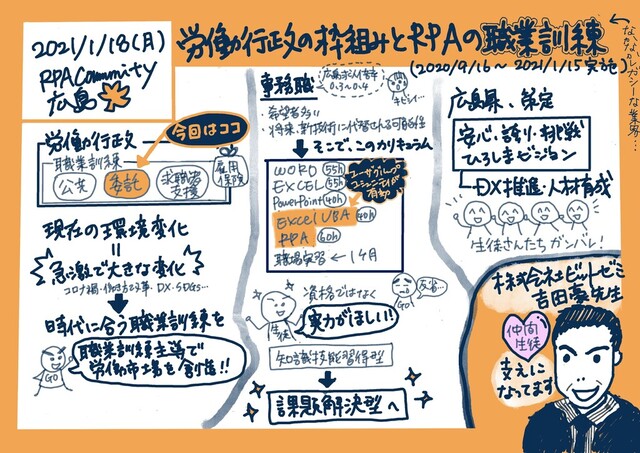 2021/1/18(月)
RPACommunity
広島
労働行政の枠組みとRPAの職業訓練
(2020/9/16～2021/1/15実施)
なかなかレガシーな業界…
労働行政
今回はココ
職業訓練
公共
委託
求職者支援
雇用保険
現在の環境変化
=
急激で大きな変化
コロナ禍・働き方改革・DX・SDGs…
時代に合う職業訓練を
職業訓練主導で
労働市場を創造!!
GO
事務職
広島求人倍率
0.3～0.4
キビシィ…
・希望者多い
・将来、新技術に代替される可能性
そこで、このカリキュラム
WORD 55h
EXCEL 55h
PowerPoint 40h
ExcelVBA 40h
RPA 60h
職場実習 ← 1ヶ月
ユーザグループ
コミュニティが
有効
反省…
GO
資格ではなく
実力がほしい!!
生徒
知識技能習得型
課題解決型へ
広島県、策定
安心・誇り・挑戦
ひろしまビジョン
DX推進・人材育成
生徒さんたち ガンバレ!
株式会社ビットゼミ
吉田豪先生
仲間
生徒
支えに
なってます